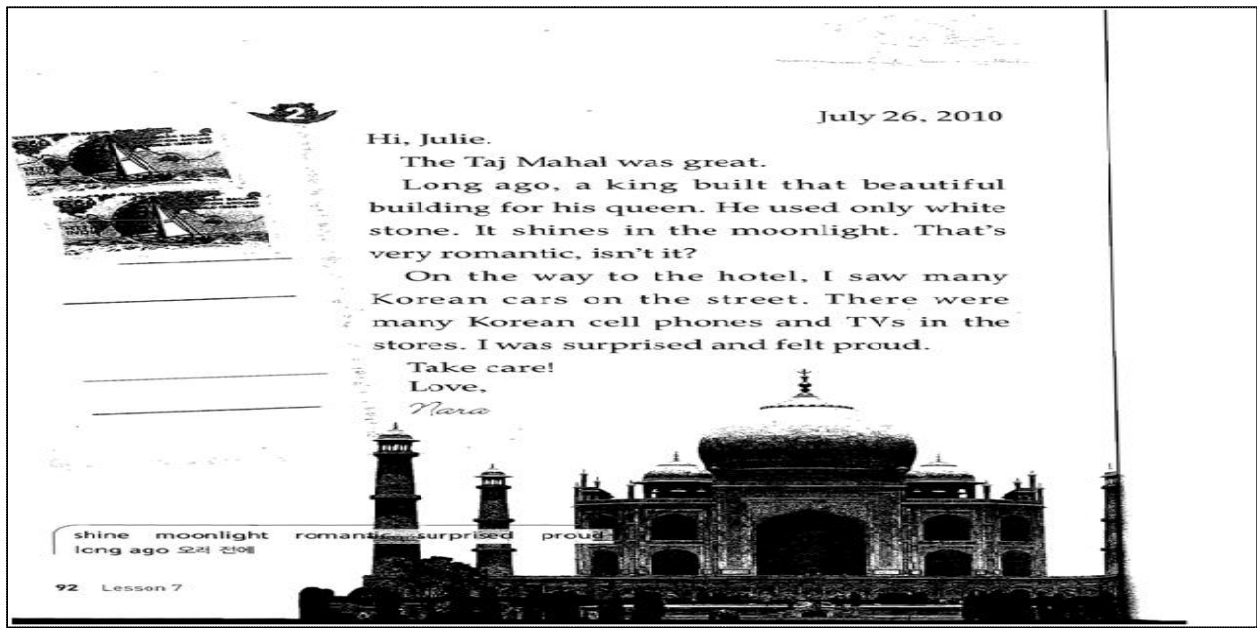 2
July 26, 2010
Hi, Julie.
The Taj Mahal was great.
Long ago, a king built that beautiful
building for his queen. He used only white
stone. It shines in the moonlight. That's
very romantic, isn't it?
On the way to the hotel, I saw many
Korean cars on the street. There were
many Korean cell phones and TVs in the
stores. I was surprised and felt proud.
Take care!
Love,
Nara
shine moonlight romantic surprised proud
long ago 오래 전에
92 Lesson 7